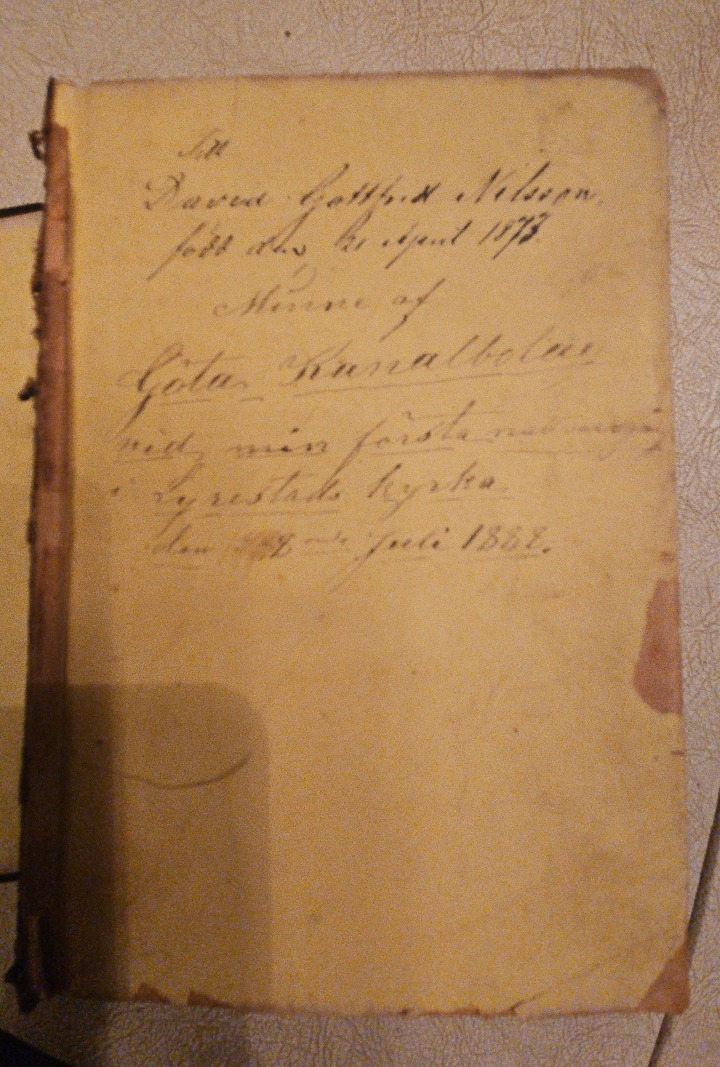 Till
David Gottfrid Nilsson,
född den 21 April 1873.
Minne af
Göta Kanalbolag
vid min första nattvardsgång
i Lyrestads kyrka.
den Juli 1888.